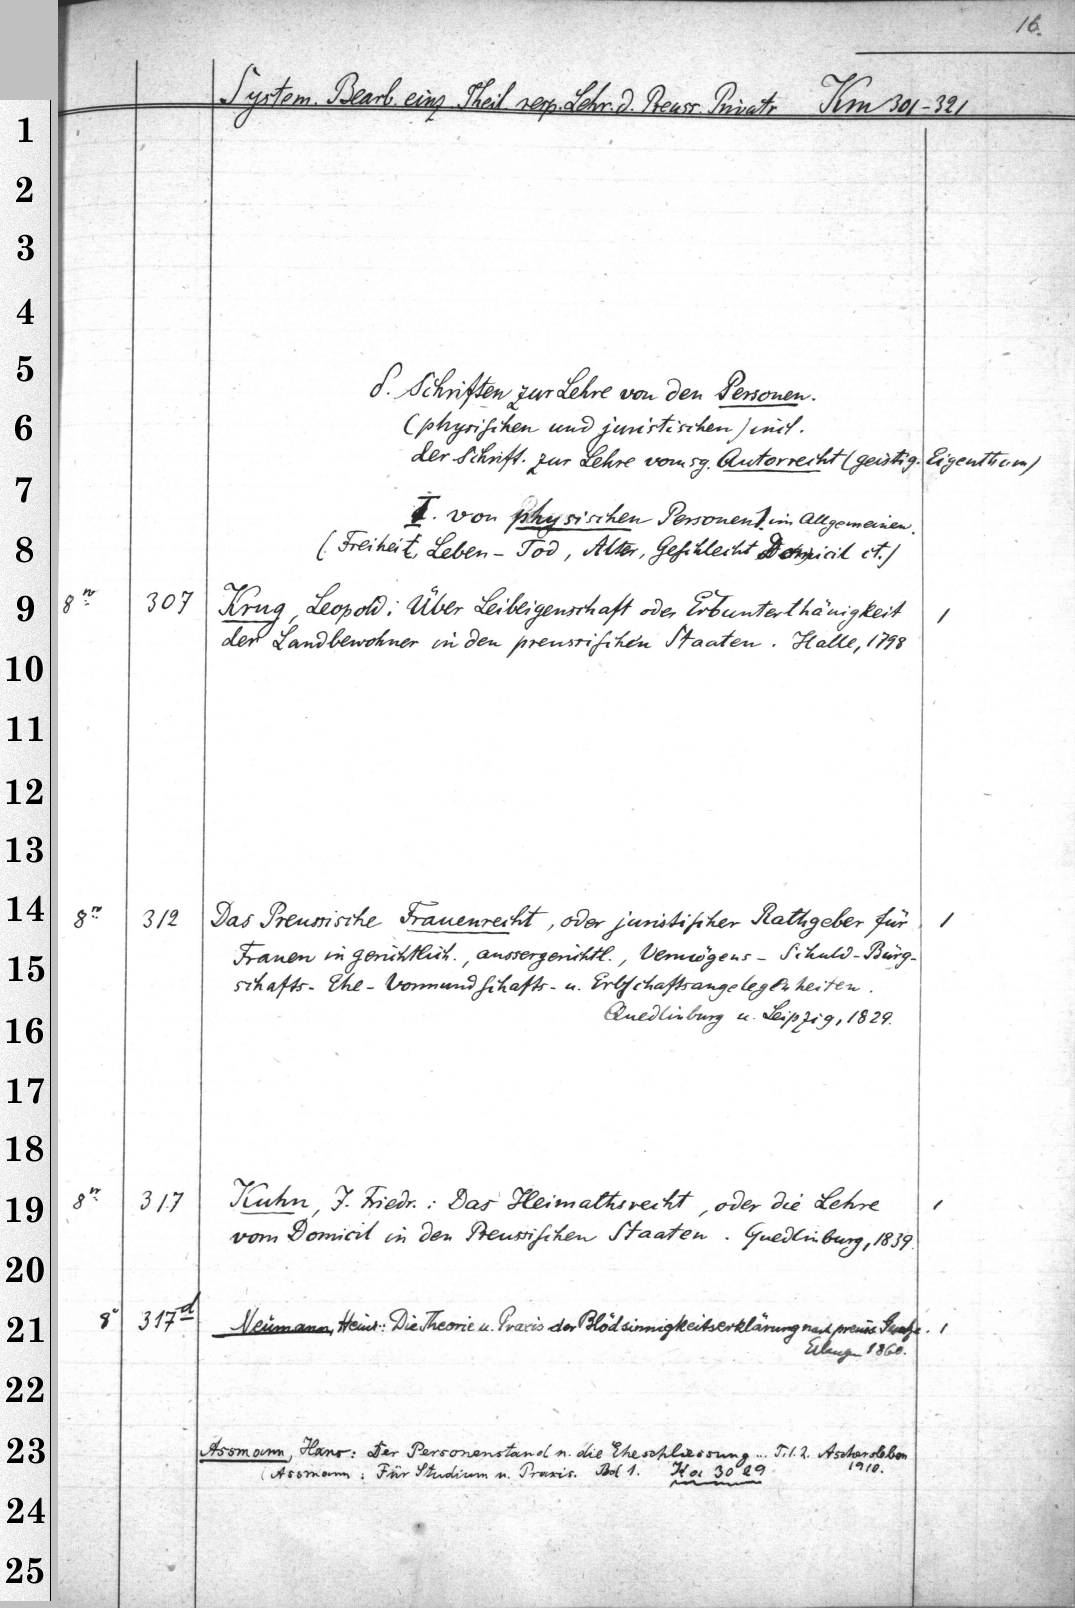 16.
System. Bearb. einz. Theil. resp. Lehr. d. Preuss. Privatr Km 301-321
δ. Schriften zur Lehre von den Personen.
(physischen und juristischen) incl.
der Schrift. zur Lehre vom sg. Autorrecht (geistig. Eigenthum)
I. von physischen Personen im Allgemeinen.
(Freiheit, Leben - Tod, Alter, Geschlecht Domicil ct.)
8vo 307 Krug, Leopold: Über Leibeigenschaft oder Erbunterthänigkeit 1
der Landbewohner in den preussischen Staaten. Halle, 1798
8vo 312 Das Preussische Frauenrecht, oder juristischer Rathgeber für 1
Frauen in gerichtlich., aussergerichtl., Vermögens- Schuld- Bürg-
schafts- Ehe- Vormundschafts- u. Erbschaftsangelegenheiten.
Quedlinburg u. Leipzig, 1829.
8vo 317 Kuhn, J. Friedr.: Das Heimathsrecht, oder die Lehre 1
vom Domicil in den Preussischen Staaten. Quedlinburg, 1839.
8° 317d Neumann, Heinr.: Die Theorie u. Praxis der Blödsinnigkeitserklärung nach preuss. Gesetze. 1
Erlangen 1860.
Assmann, Hans: Der Personenstand u. die Eheschliessung... Tl. 2. Aschersleben
1910.
(Assmann: Für Studium u. Praxis. Bd 1. Ka 3029
1
2
3
4
5
6
7
8
9
10
11
12
13
14
15
16
17
18
19
20
21
22
23
24
25